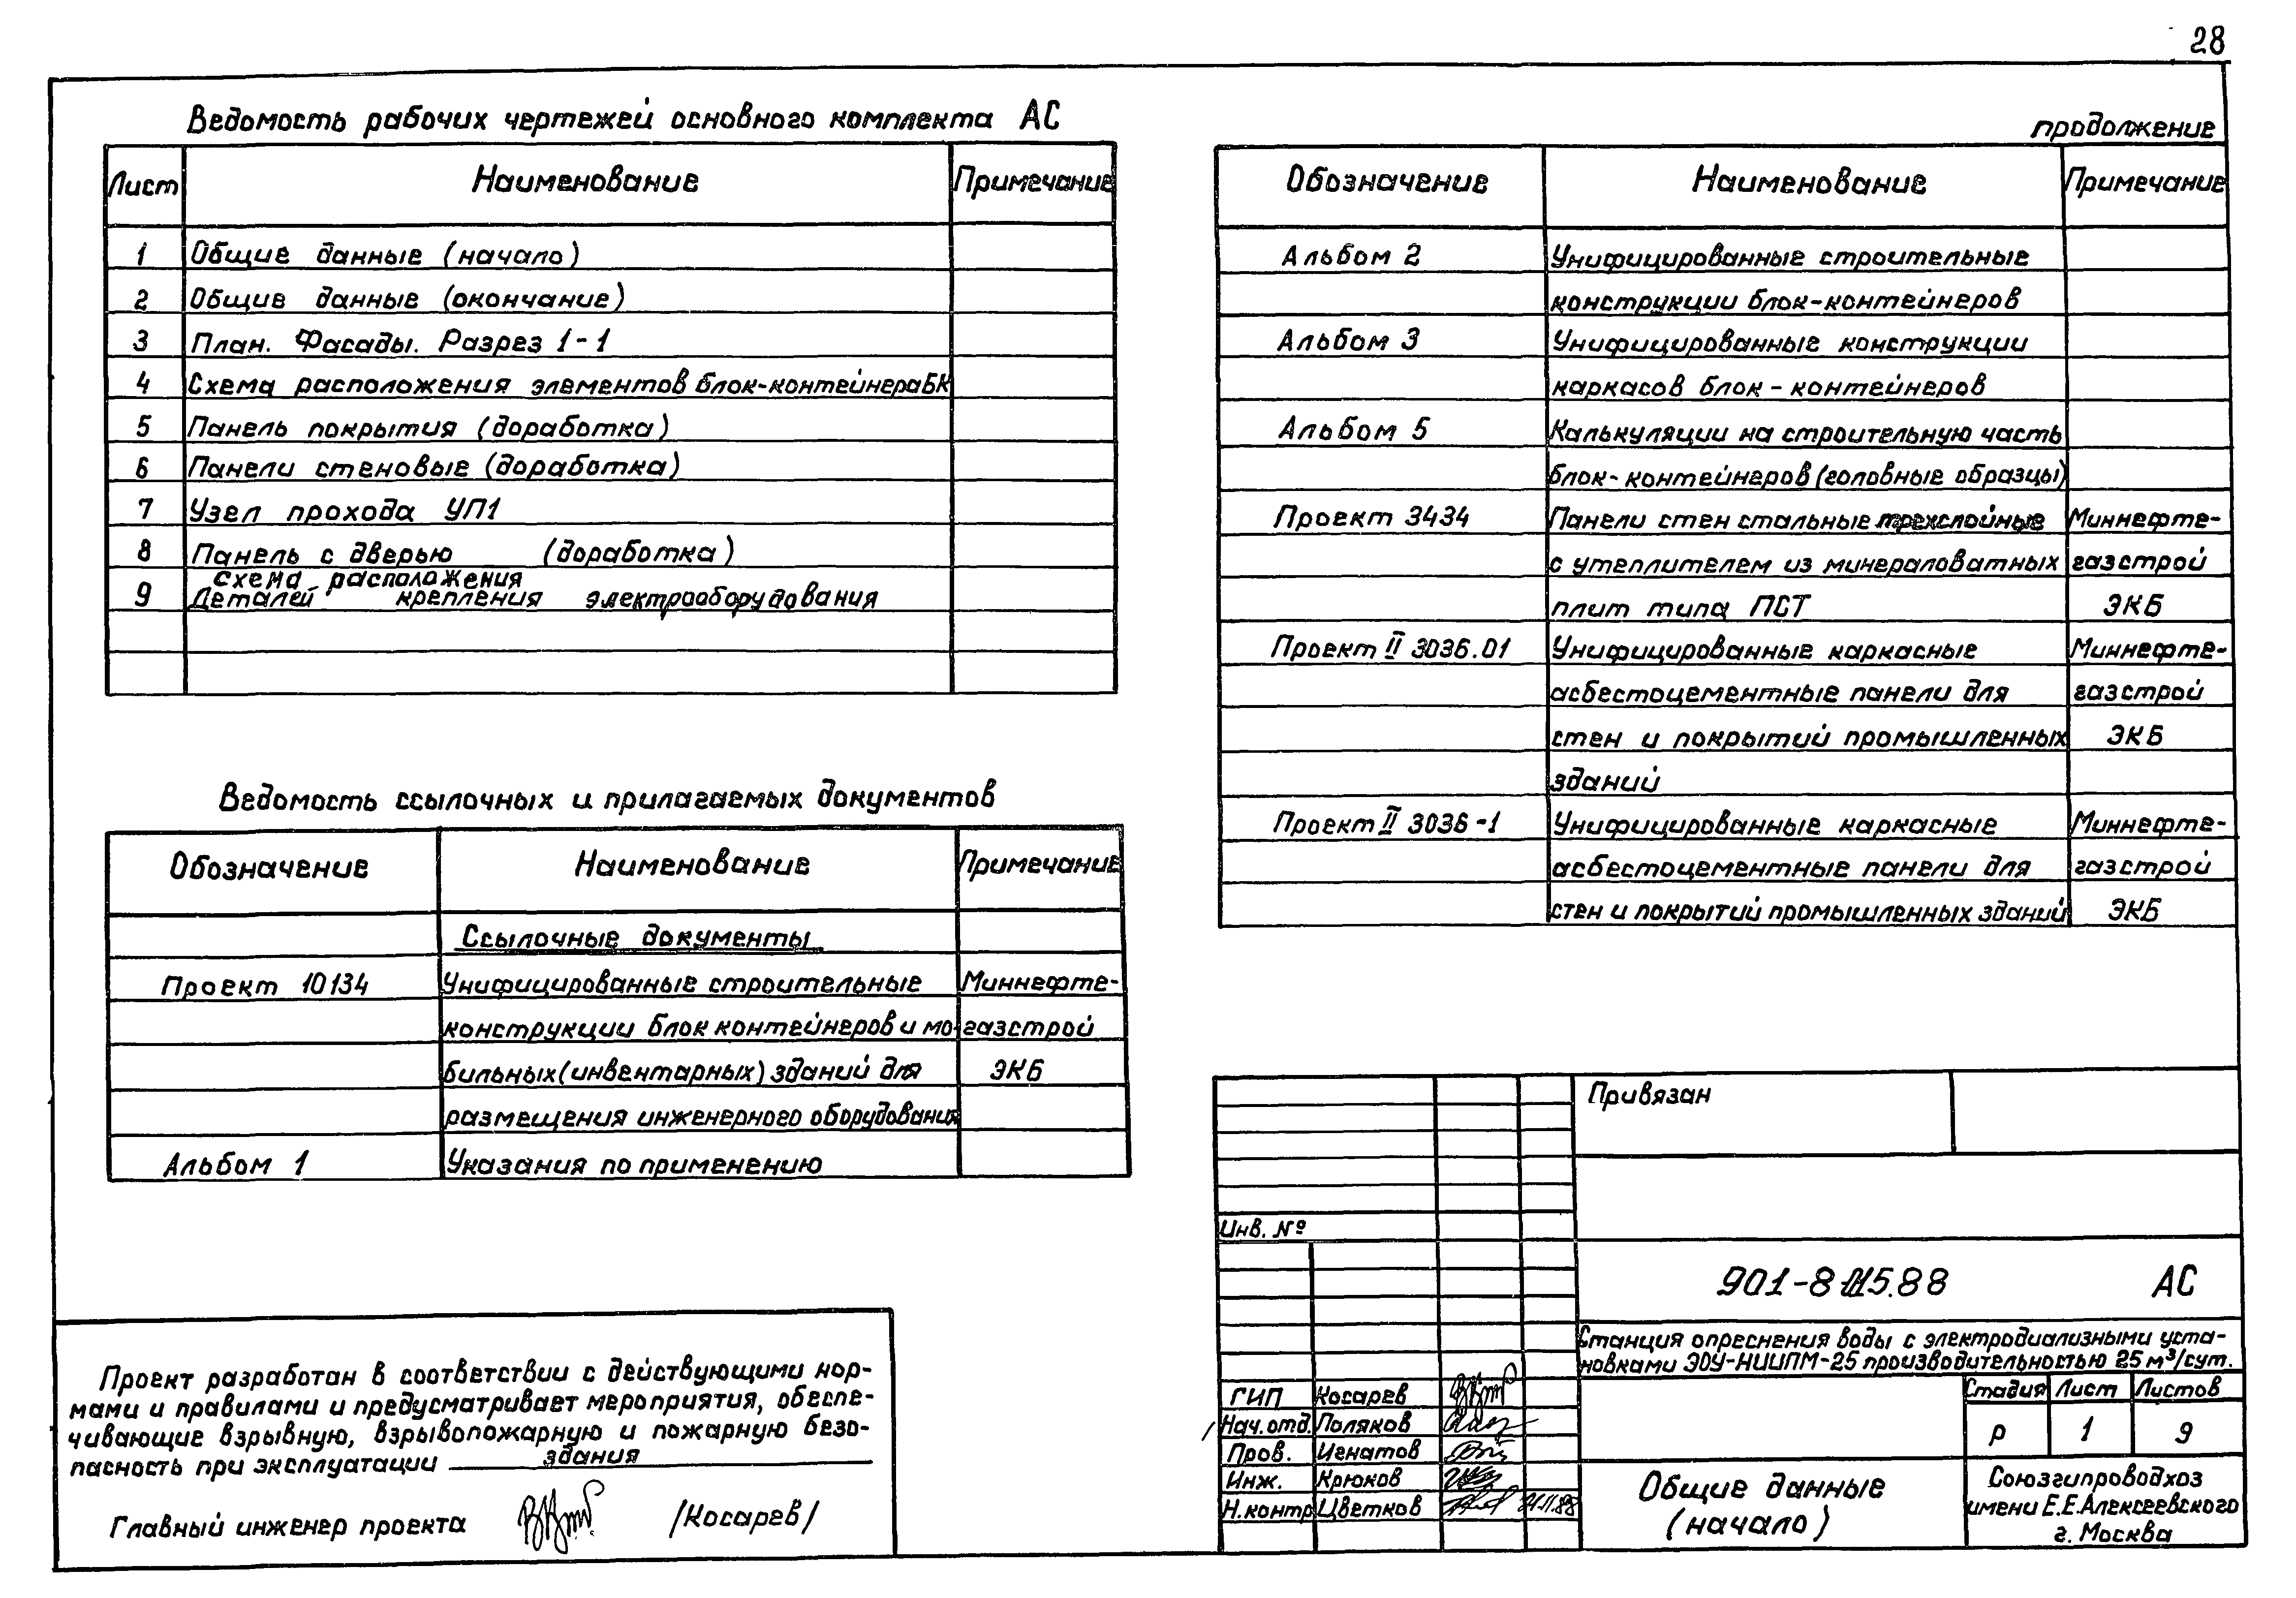 28
Ведомость рабочих чертежей основного комплекта АС
Лист Наименование Примечание
1 Общие данные (начало)
2 Общие данные (окончание)
3 План. Фасады. Разрез 1-1
4 Схема расположения элементов блок-контейнера БК
5 Панель покрытия (доработка)
6 Панели стеновые (доработка)
7 Узел прохода УП1
8 Панель с дверью (доработка)
схема расположения
9 Деталей крепления электрооборудования
Ведомость ссылочных и прилагаемых документов
Обозначение Наименование Примечание
Ссылочные документы
Проект 10134 Унифицированные строительные Миннефте-
конструкции блок контейнеров и мо- газстрой
бильных (инвентарных) зданий для ЭКБ
размещения инженерного оборудования
Альбом 1 Указания по применению
продолжение
Обозначение Наименование Примечание
Альбом 2 Унифицированные строительные
конструкции блок-контейнеров
Альбом 3 Унифицированные конструкции
каркасов блок-контейнеров
Альбом 5 Калькуляции на строительную часть
блок-контейнеров (головные образцы)
Проект 3434 Панели стен стальные трехслойные Миннефте-
с утеплителем из минераловатных газстрой
плит типа ПСТ ЭКБ
Проект II 3036.01 Унифицированные каркасные Миннефте-
асбестоцементные панели для газстрой
стен и покрытий промышленных ЭКБ
зданий
Проект II 3036-1 Унифицированные каркасные Миннефте-
асбестоцементные панели для газстрой
стен и покрытий промышленных зданий ЭКБ
Проект разработан в соответствии с действующими нор-
мами и правилами и предусматривает мероприятия, обеспе-
чивающие взрывную, взрывопожарную и пожарную безо-
пасность при эксплуатации здания
Главный инженер проекта /Косарев/
Привязан
Инв. №
АС
Станция опреснения воды с электродиализными уста-
новками ЭОУ-НИИПМ-25 производительностью 25 м³/сут.
ГИП Косарев
Нач.отд. Поляков
Пров. Игнатов
Инж. Крюков
Н.контр. Цветков
Стадия Лист Листов
Р 1 9
Общие данные
(начало)
Союзгипроводхоз
имени Е.Е.Алексеевского
г. Москва